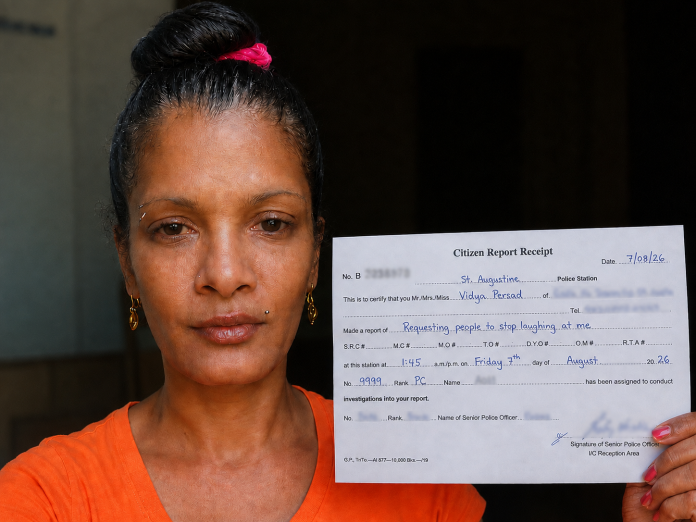 Citizen Report Receipt
Date 7/08/26
No. B
St. Augustine Police Station
This is to certify that you Mr./Mrs./Miss Vidya Persad of
Tel.
Made a report of Requesting people to stop laughing at me
S.R.C # M.C # M.O # T.O # D.Y.O # O.M # R.T.A #
at this station at 1:45 a.m/p.m. on Friday 7th day of August 20 26
No. 9999 Rank PC Name has been assigned to conduct
investigations into your report.
No. Rank Name of Senior Police Officer
Signature of Senior Police Officer
I/C Reception Area
G.P., Tr/To.—Al 877—10,000 Bks.—/19